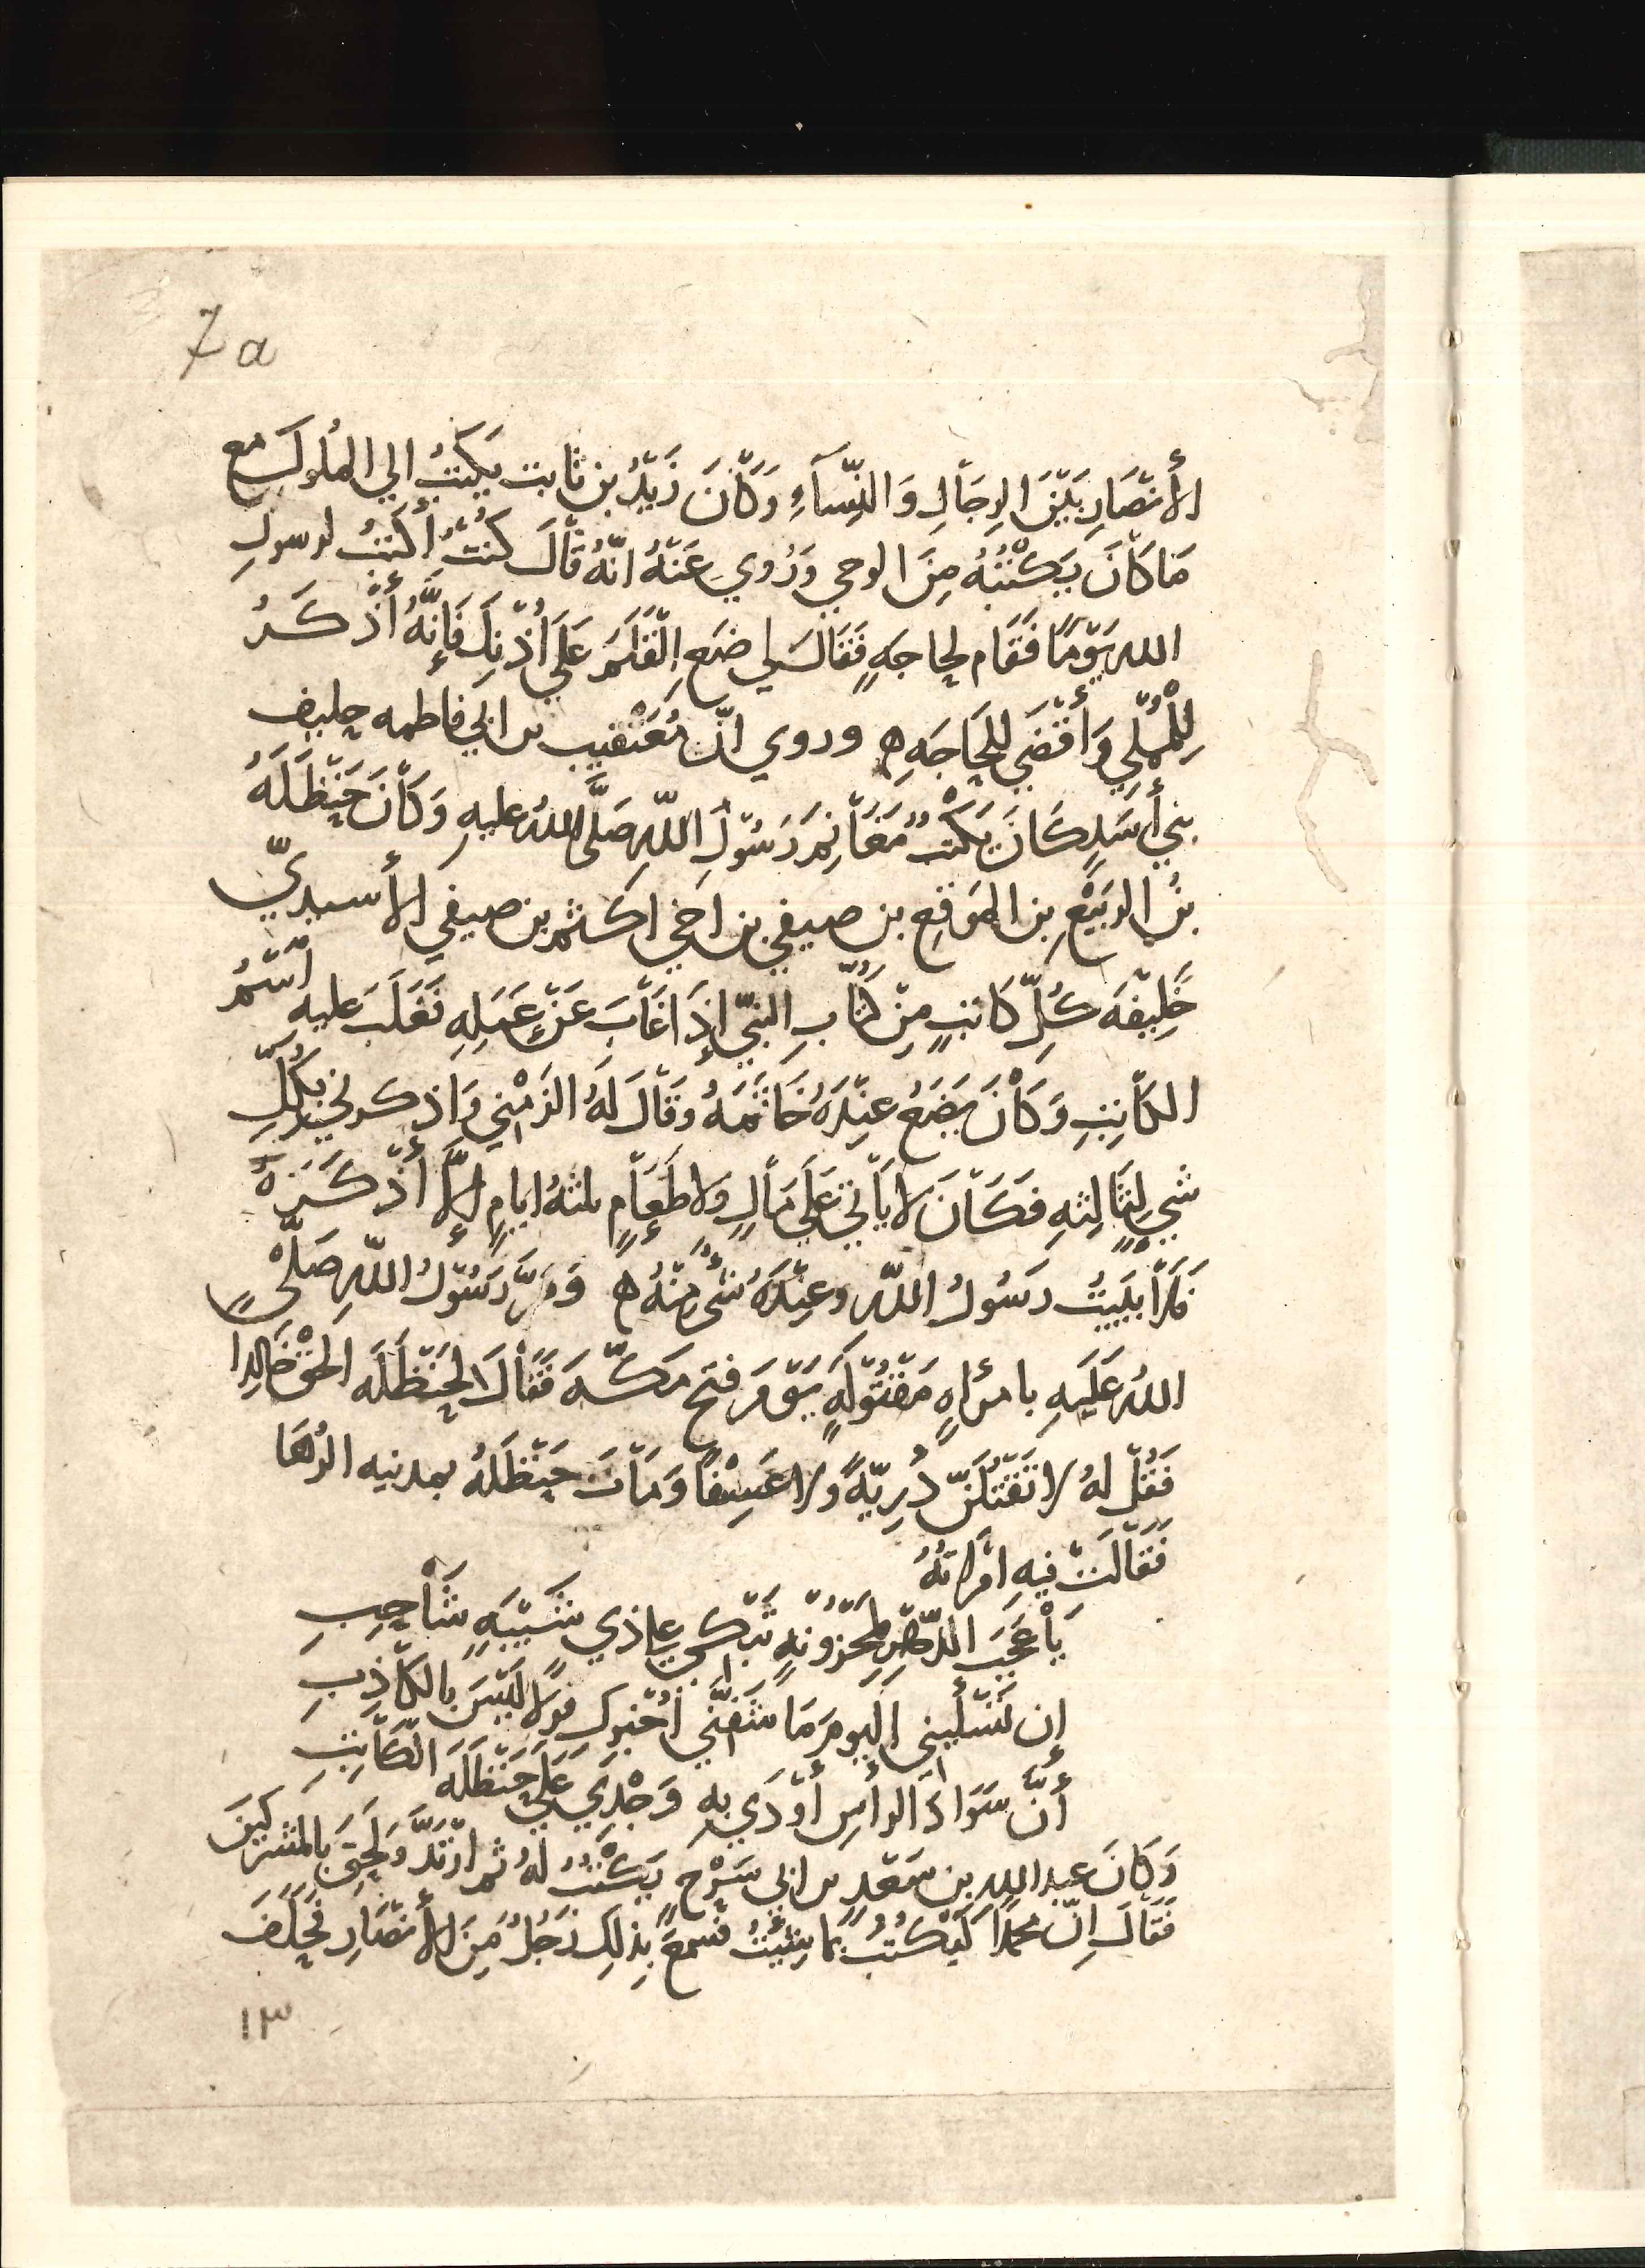 7a
الأنْصَارِ بَيْنَ الرِجَالِ وَالنِّسَآءِ وَكَانَ زَيْدُ بن ثابت يَكتبُ الي المُلوكِ مع
مَا كَانَ يَكْتُبُهُ مِنَ الوحي وَرُوي عَنْهُ انَّهُ قَالَ كنتُ أكتبُ لرسولِ
الله يَوْمًا فَقَام لحاجَةٍ فَقَالَ لي ضَعِ القَلَمَ عَلَي أُذْنِكَ فَإِنَّهُ أَذْكَرُ
لِلْمُمْلِي وَأَقْضَي لِلحَاجَةِ ه وروي انّ مُعَيْقيب بن ابي فاطمه حليف
بني أَسَدٍ كَانَ يَكْتُبُ مَغَانِمَ رَسُولِ اللّهِ صَلَّي اللهُ عليهِ وَكَانَ حَنْظَلَهُ
بنُ الرَبيْعِ بن المرَقع بن صيفي بن اخي اكثم بن صيفي الأسيديّ
خَلِيْفَه كُلّ كَاتبٍ مِنْ كُتّابِ النبيّ إذَا غَابَ عَنْ عَمَلِهِ فَغَلَبَ عليهِ اسْمُ
الكَاتِبِ وَكَانَ يَضَعُ عِنْدَهُ خَاتَمَهُ وَقَالَ لَهُ الزَمْني وَاذكرني بكُلّ
شيٍ لِثَالِثهِ فَكَانَ لا يَأتي عَلَي مَالٍ وَلا طَعَامٍ ثلثهُ ايامٍ إلاّ أَذْكَرَهُ
فَلاَ يَبيتُ رَسُولُ اللّه وَعِنْدَهُ شيٌ مِنْهُ ه وَمَرَّ رَسُولُ اللّهِ صَلّي
اللهُ عَلَيهِ بامرأهٍ مَقْتُولَهٍ يَوْمَ فتح مَكّه فَقَالَ لحَنْظَلَه الحَقْ خَالِدًا
فَقُلْ لهُ لا تَقْتُلَنّ ذُرِيّةً ولا عَسِيْفًا وَمَاتَ حَنْظَلَهُ بمدينه الرُهَا
فَقَالَتْ فيهِ امْرَاتهُ
يَا عَجَبَ الدّهْرِ لمحْزُونهٍ تَبْكي علي ذي شَيْبَهٍ شَاحِبِ
إن تَسْأليني اليومَ مَا شَفَّني أخْبرك قولاً لَيْسَ بالكَاذِبِ
أنّ سَوَادَ الرأسِ أَوْدَي بهِ وَجْدِي عَلَي حَنْظَلَه الكَاتِبِ
وَكَانَ عبد اللهِ بن سَعْدٍ بن ابي سَرْحٍ يَكْتُبُ لهُ ثم ارْتَدَّ وَلَحِقَ بالمشركينَ
فَقَالَ إنّ محمدًا لَيَكْتُبُ بما شِئْتُ فسمعَ بذلِكَ رَجُلٌ مِنَ الأنصَارِ فحَلَفَ
١٣